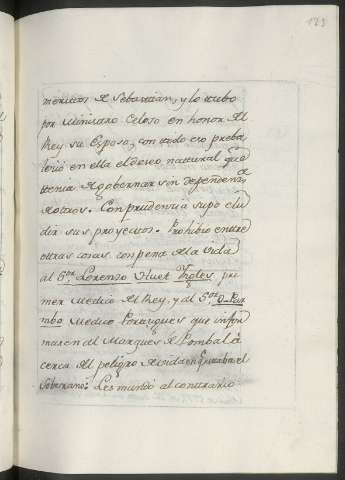 123
meritos de Sebastian, y lo tubo
por Ministro Celoso en honor del
Rey su Esposo, con todo eso preba
leció en ella el deseo natural que
tenia de gobernar sin dependen.ᵃ
de otros. Con prudencia supo elu
dir sus proyectos. Prohibio entre
otras cosas con pena de la vida
al Sᵒʳ Lorenzo Yngles, pri
mer Medico del Rey, y al Sᵒʳ
Medico Portugues que infor
masen al Marques de Pombal a
cerca del peligro de vida en q estaba el
Soberano: Les mandó al contrario